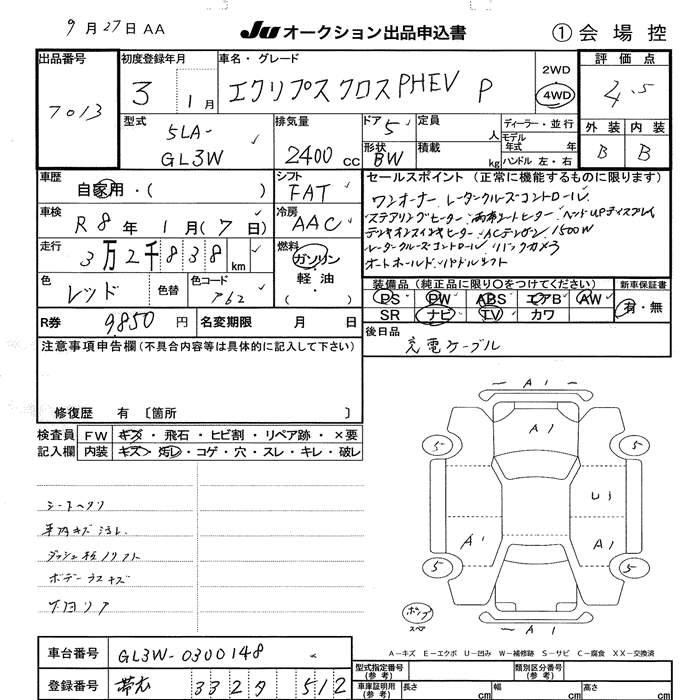 9月27日 AA
Ju オークション出品申込書
① 会場控
出品番号
7013
初度登録年月
3 1月
車名・グレード
エクリプスクロスPHEV P
2WD
4WD
評価点
4.5
外装 内装
B B
型式
5LA-
GL3W
排気量
2400cc
ドア
5
形状
BW
定員 人
積載 kg
ディーラー・並行
モデル年式 年
ハンドル 左・右
車歴
自家用・( )
シフト
FAT
車検
R8年1月(7日)
冷房
AAC
走行
3万2千838km
燃料
ガソリン
軽油
・( )
色
レッド
色替
色コード
R券
9,850円
名変期限 月 日
セールスポイント(正常に機能するものに限ります)
ワンオーナー レータークルーズコントロール
ステアリングヒーター 両席シートヒーター ヘッドUPディスプレイ
1500W
レータークルーズコントロール バックカメラ
オートホールド パドルシフト
装備品(純正品に限り〇をつけてください)
PS PW ABS エアB AW
SR ナビ TV カワ
新車保証書
有・無
後日品
充電ケーブル
注意事項申告欄(不具合内容等は具体的に記入して下さい)
修復歴 有 〔箇所 〕
検査員記入欄
FW キズ・飛石・ヒビ割・リペア跡・×要
内装 キズ・汚レ・コゲ・穴・スレ・キレ・破レ
シートヘタリ
車内キズ汚レ
ボデーラスキズ
下回リア
A1
A1
5 5
U1
A1 A1
5 5
A1
スペア
A－キズ E－エクボ U－凹み W－補修跡 S－サビ C－腐食 XX－交換済
車台番号
GL3W-0300148
登録番号
帯広 332 512
型式指定番号(参考)
類別区分番号(参考)
車庫証明用(参考)
長さ cm 幅 cm 高さ cm